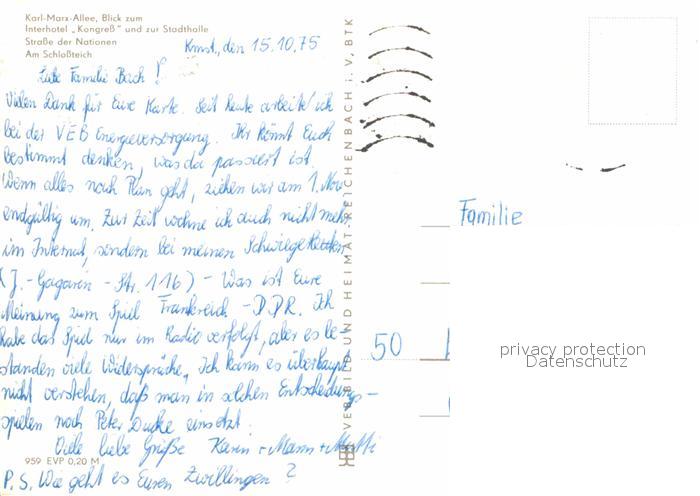 Karl-Marx-Allee, Blick zum
Interhotel „Kongreß" und zur Stadthalle
Straße der Nationen
Am Schloßteich
Kmst., den 15.10.75
Liebe Familie Bach!
Vielen Dank für Eure Karte. Seit heute arbeite ich
bei der VEB Energieversorgung. Ihr könnt Euch
bestimmt denken, was da passiert ist.
Wenn alles nach Plan geht, ziehen wir am 1. Nov
endgültig um. Zur Zeit wohne ich auch nicht mehr
im Internat, sondern bei meinen
(J.-Gagarin-Str. 116) - Was ist Eure
Meinung zum Spiel Frankreich - DDR. Ich
habe das Spiel nur im Radio verfolgt, aber es be-
standen viele Widersprüche. Ich kann es überhaupt
nicht verstehen, daß man in solchen Entscheidungs-
spielen noch Peter Ducke einsetzt.
Viele liebe Grüße Karin + Mann + Mutti
P.S. Wie geht es Euren Zwillingen?
959 EVP 0,20 M
VERB BILD UND HEIMAT REICHENBACH i. V. BTK
Familie
50
privacy protection
Datenschutz